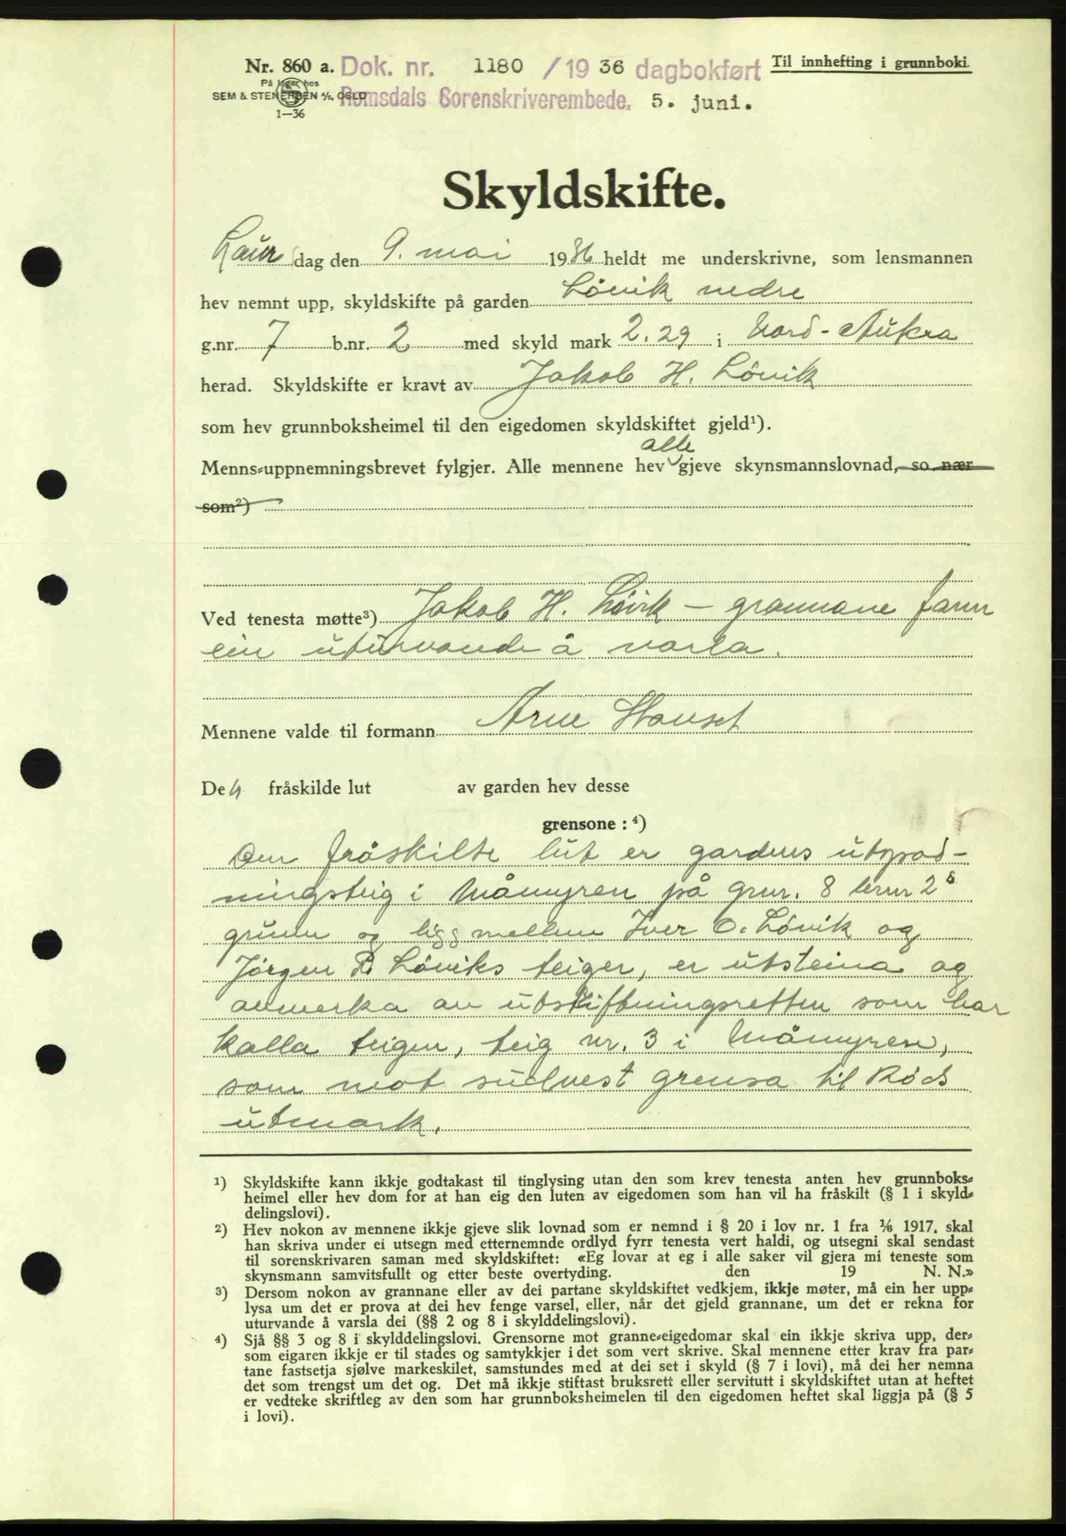 Nr. 860 a. Dok. nr. 1180 /19 36 dagbokført Til innhefting i grunnboki.
På lager hos
SEM & STENERSEN A/S, OSLO Romsdals Sorenskriverembede, 5. juni.
1—36
Skyldskifte.
Laur dag den 9. mai 1936 heldt me underskrivne, som lensmannen
hev nemnt upp, skyldskifte på garden Lövik nedre
g.nr. 7 b.nr. 2 med skyld mark 2.29 i Nord-Aukra
herad. Skyldskifte er kravt av Jakob H. Lövik
som hev grunnboksheimel til den eigedomen skyldskiftet gjeld¹).
alle
Menns-uppnemningsbrevet fylgjer. Alle mennene hev gjeve skynsmannslovnad, so nær
som²)
Ved tenesta møtte³) Jakob H. Lövik — grannane fann
ein uturvande å varla.
Mennene valde til formann Arne Hauset
De n fråskilde lut av garden hev desse
grensone: ⁴)
Den fråskilte lut er gardens utgrød-
ningsteig i Måmyren på grnr. 8 brnr 2s
grunn og ligg mellem Iver O. Lövik og
Jörgen P. Löviks teiger, er utsteina og
anmerka av utskiftningsretten som har
kalla teigen, teig nr. 3 i Måmyren,
som mot sudvest grensa til Röds
utmark.
¹) Skyldskifte kann ikkje godtakast til tinglysing utan den som krev tenesta anten hev grunnboks-
heimel eller hev dom for at han eig den luten av eigedomen som han vil ha fråskilt (§ 1 i skyld-
delingslovi).
²) Hev nokon av mennene ikkje gjeve slik lovnad som er nemnd i § 20 i lov nr. 1 fra 1/6 1917, skal
han skriva under ei utsegn med etternemnde ordlyd fyrr tenesta vert haldi, og utsegni skal sendast
til sorenskrivaren saman med skyldskiftet: «Eg lovar at eg i alle saker vil gjera mi teneste som
skynsmann samvitsfullt og etter beste overtyding. den 19 N. N.»
³) Dersom nokon av grannane eller av dei partane skyldskiftet vedkjem, ikkje møter, må ein her upp-
lysa um det er prova at dei hev fenge varsel, eller, når det gjeld grannane, um det er rekna for
uturvande å varsla dei (§§ 2 og 8 i skylddelingslovi).
⁴) Sjå §§ 3 og 8 i skylddelingslovi. Grensorne mot granne-eigedomar skal ein ikkje skriva upp, der-
som eigaren ikkje er til stades og samtykkjer i det som vert skrive. Skal mennene etter krav fra par-
tane fastsetja sjølve markeskilet, samstundes med at dei set i skyld (§ 7 i lovi), må dei her nemna
det som trengst um det og. Det må ikkje stiftast bruksrett eller servitutt i skyldskiftet utan at heftet
er vedteke skriftleg av den som har grunnboksheimelen til den eigedomen heftet skal liggja på (§ 5
i lovi).